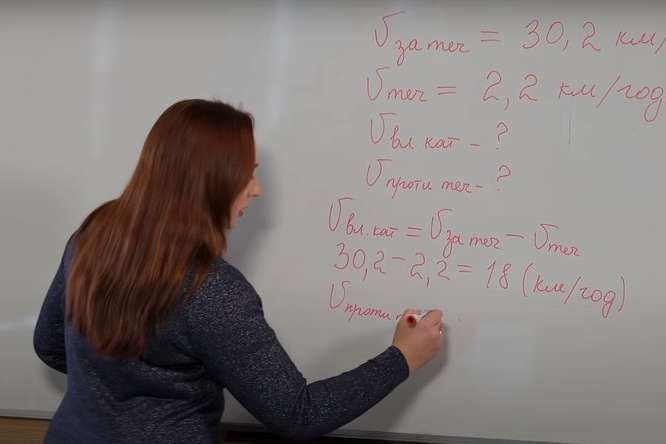 Vза теч = 30,2 км/
Vтеч = 2,2 км/год
Vвл. кат - ?
Vпроти теч - ?
Vвл. кат = Vза теч - Vтеч
30,2 - 2,2 = 18 (км/год)
Vпроти